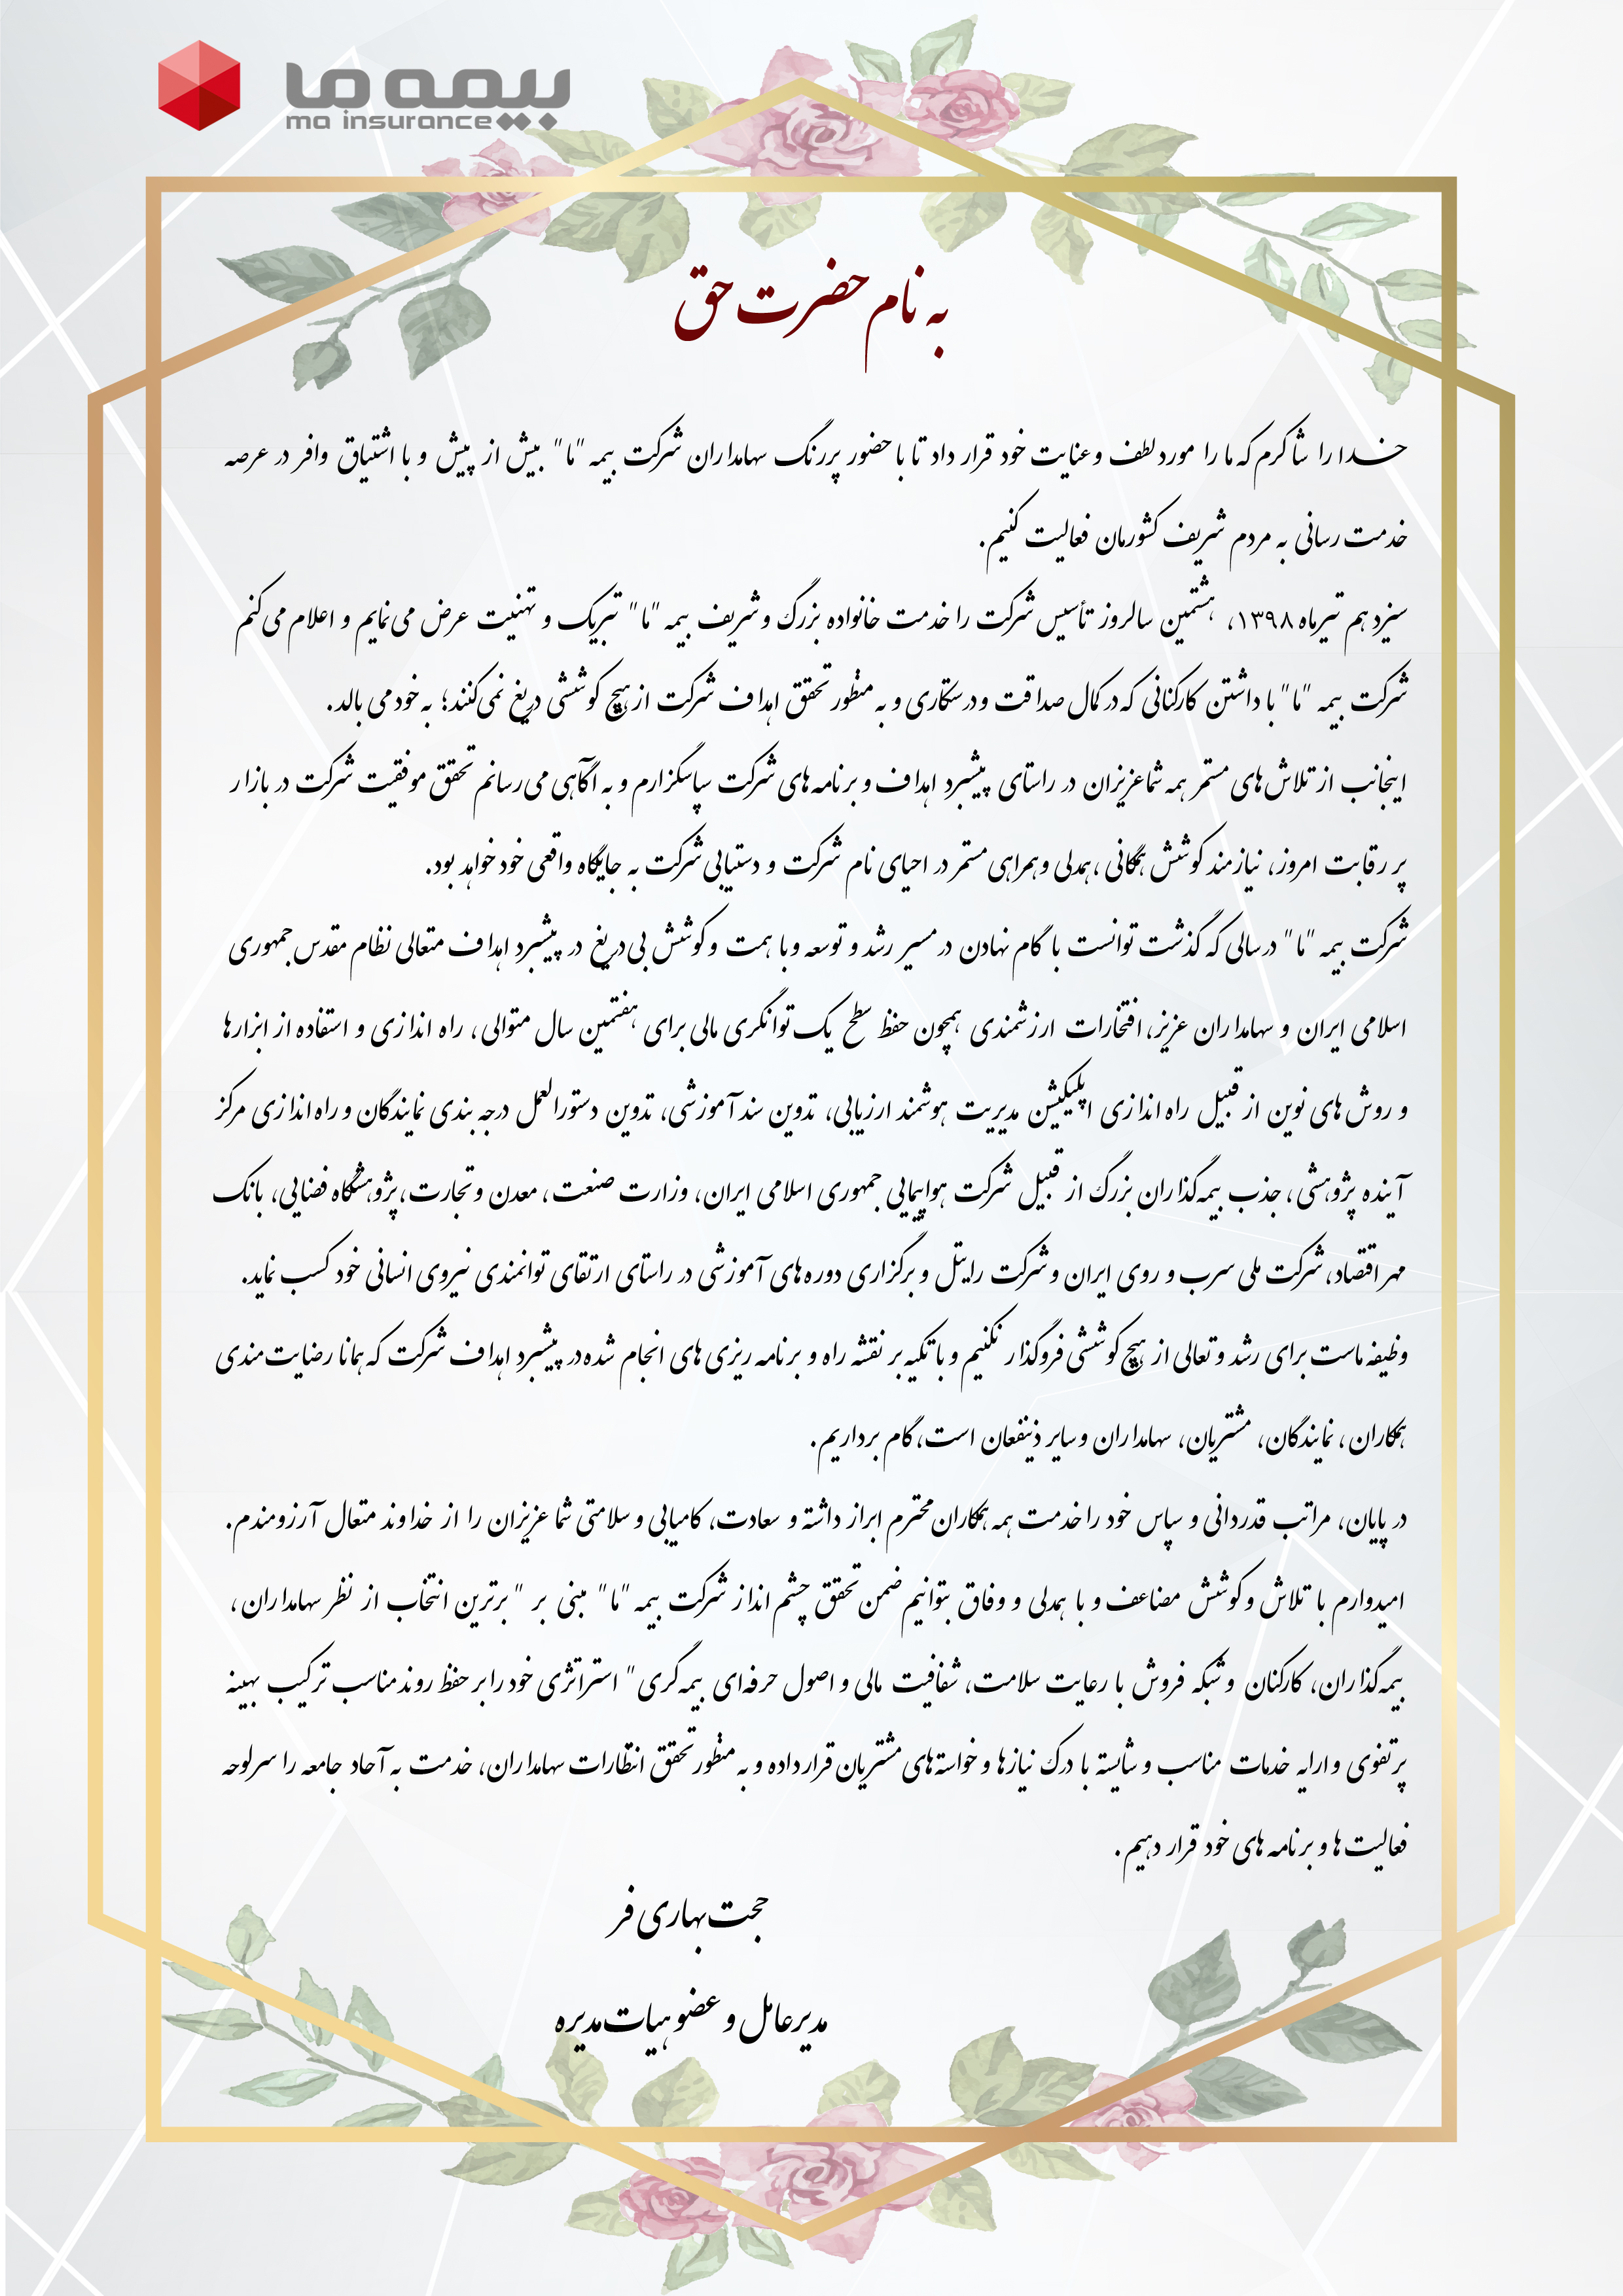 بیمه ما
ma insurance
به نام حضرت حق
خدا را شاکرم که ما را مورد لطف و عنایت خود قرار داد تا با حضور پررنگ سهامداران شرکت بیمه "ما" بیش از پیش و با اشتیاق وافر در عرصه
خدمت رسانی به مردم شریف کشورمان فعالیت کنیم.
سیزدهم تیرماه ۱۳۹۸، هشتمین سالروز تأسیس شرکت را خدمت خانواده بزرگ و شریف بیمه "ما" تبریک و تهنیت عرض می‌نمایم و اعلام می‌کنم
شرکت بیمه "ما" با داشتن کارکنانی که در کمال صداقت و درستکاری و به منظور تحقق اهداف شرکت از هیچ کوششی دریغ نمی‌کنند؛ به خود می بالد.
اینجانب از تلاش‌های مستمر همه شما عزیزان در راستای پیشبرد اهداف و برنامه‌های شرکت سپاسگزارم و به آگاهی می‌رسانم تحقق موفقیت شرکت در بازار
پر رقابت امروز، نیازمند کوشش همگانی، همدلی و همراهی مستمر در احیای نام شرکت و دستیابی شرکت به جایگاه واقعی خود خواهد بود.
شرکت بیمه "ما" در سالی که گذشت توانست با گام نهادن در مسیر رشد و توسعه و با همت و کوشش بی‌دریغ در پیشبرد اهداف متعالی نظام مقدس جمهوری
اسلامی ایران و سهامداران عزیز، افتخارات ارزشمندی همچون حفظ سطح یک توانگری مالی برای هفتمین سال متوالی، راه اندازی و استفاده از ابزارها
و روش های نوین از قبیل راه اندازی اپلیکیشن مدیریت هوشمند ارزیابی، تدوین سند آموزشی، تدوین دستورالعمل درجه بندی نمایندگان و راه اندازی مرکز
آینده پژوهشی، جذب بیمه‌گذاران بزرگ از قبیل شرکت هواپیمایی جمهوری اسلامی ایران، وزارت صنعت، معدن و تجارت، پژوهشگاه فضایی، بانک
مهر اقتصاد، شرکت ملی سرب و روی ایران و شرکت رایتل و برگزاری دوره‌های آموزشی در راستای ارتقای توانمندی نیروی انسانی خود کسب نماید.
وظیفه ماست برای رشد و تعالی از هیچ کوششی فروگذار نکنیم و با تکیه بر نقشه راه و برنامه ریزی های انجام شده در پیشبرد اهداف شرکت که همانا رضایت‌مندی
همکاران، نمایندگان، مشتریان، سهامداران و سایر ذینفعان است، گام برداریم.
در پایان، مراتب قدردانی و سپاس خود را خدمت همه همکاران محترم ابراز داشته و سعادت، کامیابی و سلامتی شما عزیزان را از خداوند متعال آرزومندم.
امیدوارم با تلاش و کوشش مضاعف و با همدلی و وفاق بتوانیم ضمن تحقق چشم انداز شرکت بیمه "ما" مبنی بر "برترین انتخاب از نظر سهامداران،
بیمه‌گذاران، کارکنان و شبکه فروش با رعایت سلامت، شفافیت مالی و اصول حرفه‌ای بیمه‌گری" استراتژی خود را بر حفظ روند مناسب ترکیب بهینه
پرتفوی و ارایه خدمات مناسب و شایسته با درک نیازها و خواسته‌های مشتریان قرار داده و به منظور تحقق انتظارات سهامداران، خدمت به آحاد جامعه را سرلوحه
فعالیت ها و برنامه های خود قرار دهیم.
حجت بهاری فر
مدیرعامل و عضو هیات مدیره